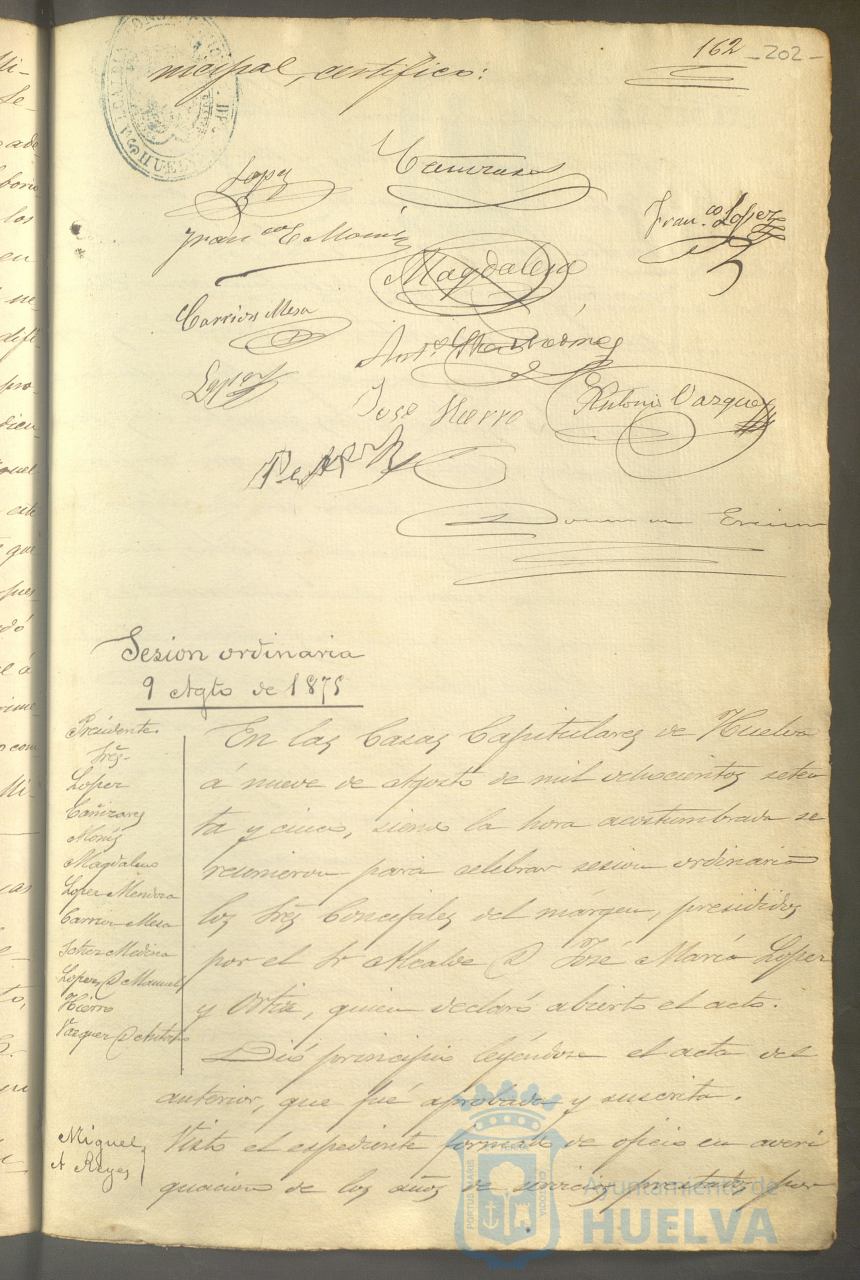 162 -202-
nicipal, certifico:
Lopez
Cañizares
Fran.co Lopez
Fran.co E Monis
Magdalena
Carrion Mesa
Ant.o
Lopez
José Hierro
Antonio Vazquez
Sesion ordinaria
9 Agto de 1875
Presidente
Sres
Lopez
Cañizares
Monis
Magdalena
Lopez Mendoza
Carrion Mesa
Medina
Lopez D Manuel
Hierro
Vazquez D Antonio
En las Casas Capitulares de Huelva
á nueve de Agosto de mil ochocientos seten
ta y cinco, siendo la hora acostumbrada se
reunieron para celebrar sesion ordinaria
los Sres Concejales del márgen, presididos
por el Sr Alcalde D José María Lopez
y Ortiz, quien declaró abierto el acto.
Dió principio leyéndose el acta del
anterior, que fué aprobada y suscrita.
Miguel
A Reyes
Visto el espediente formado de oficio en averi
guacion de los años de servicios prestados por
PORTUS MARIS
ET TERRAE
CUSTODIA
Ayuntamiento de
HUELVA